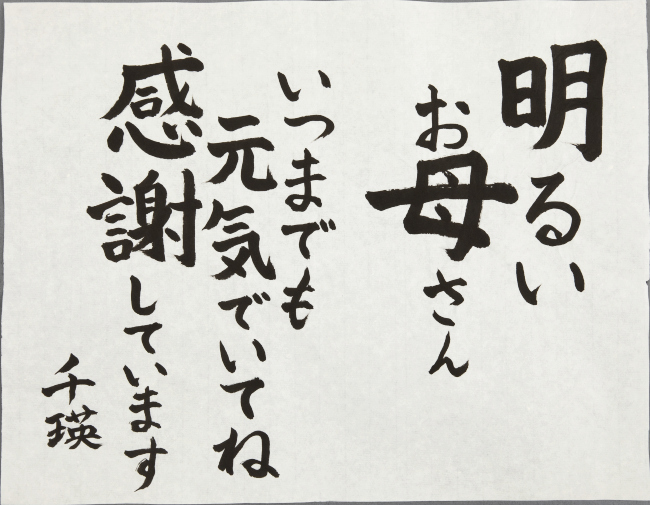 明るい
お母さん
いつまでも
元気でいてね
感謝しています
千瑛